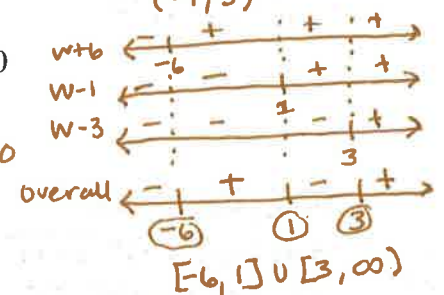 w+6 - + + +
-6
w-1 - - + +
1
w-3 - - - +
3
overall - + - +
-6 1 3
[-6, 1] ∪ [3, ∞)